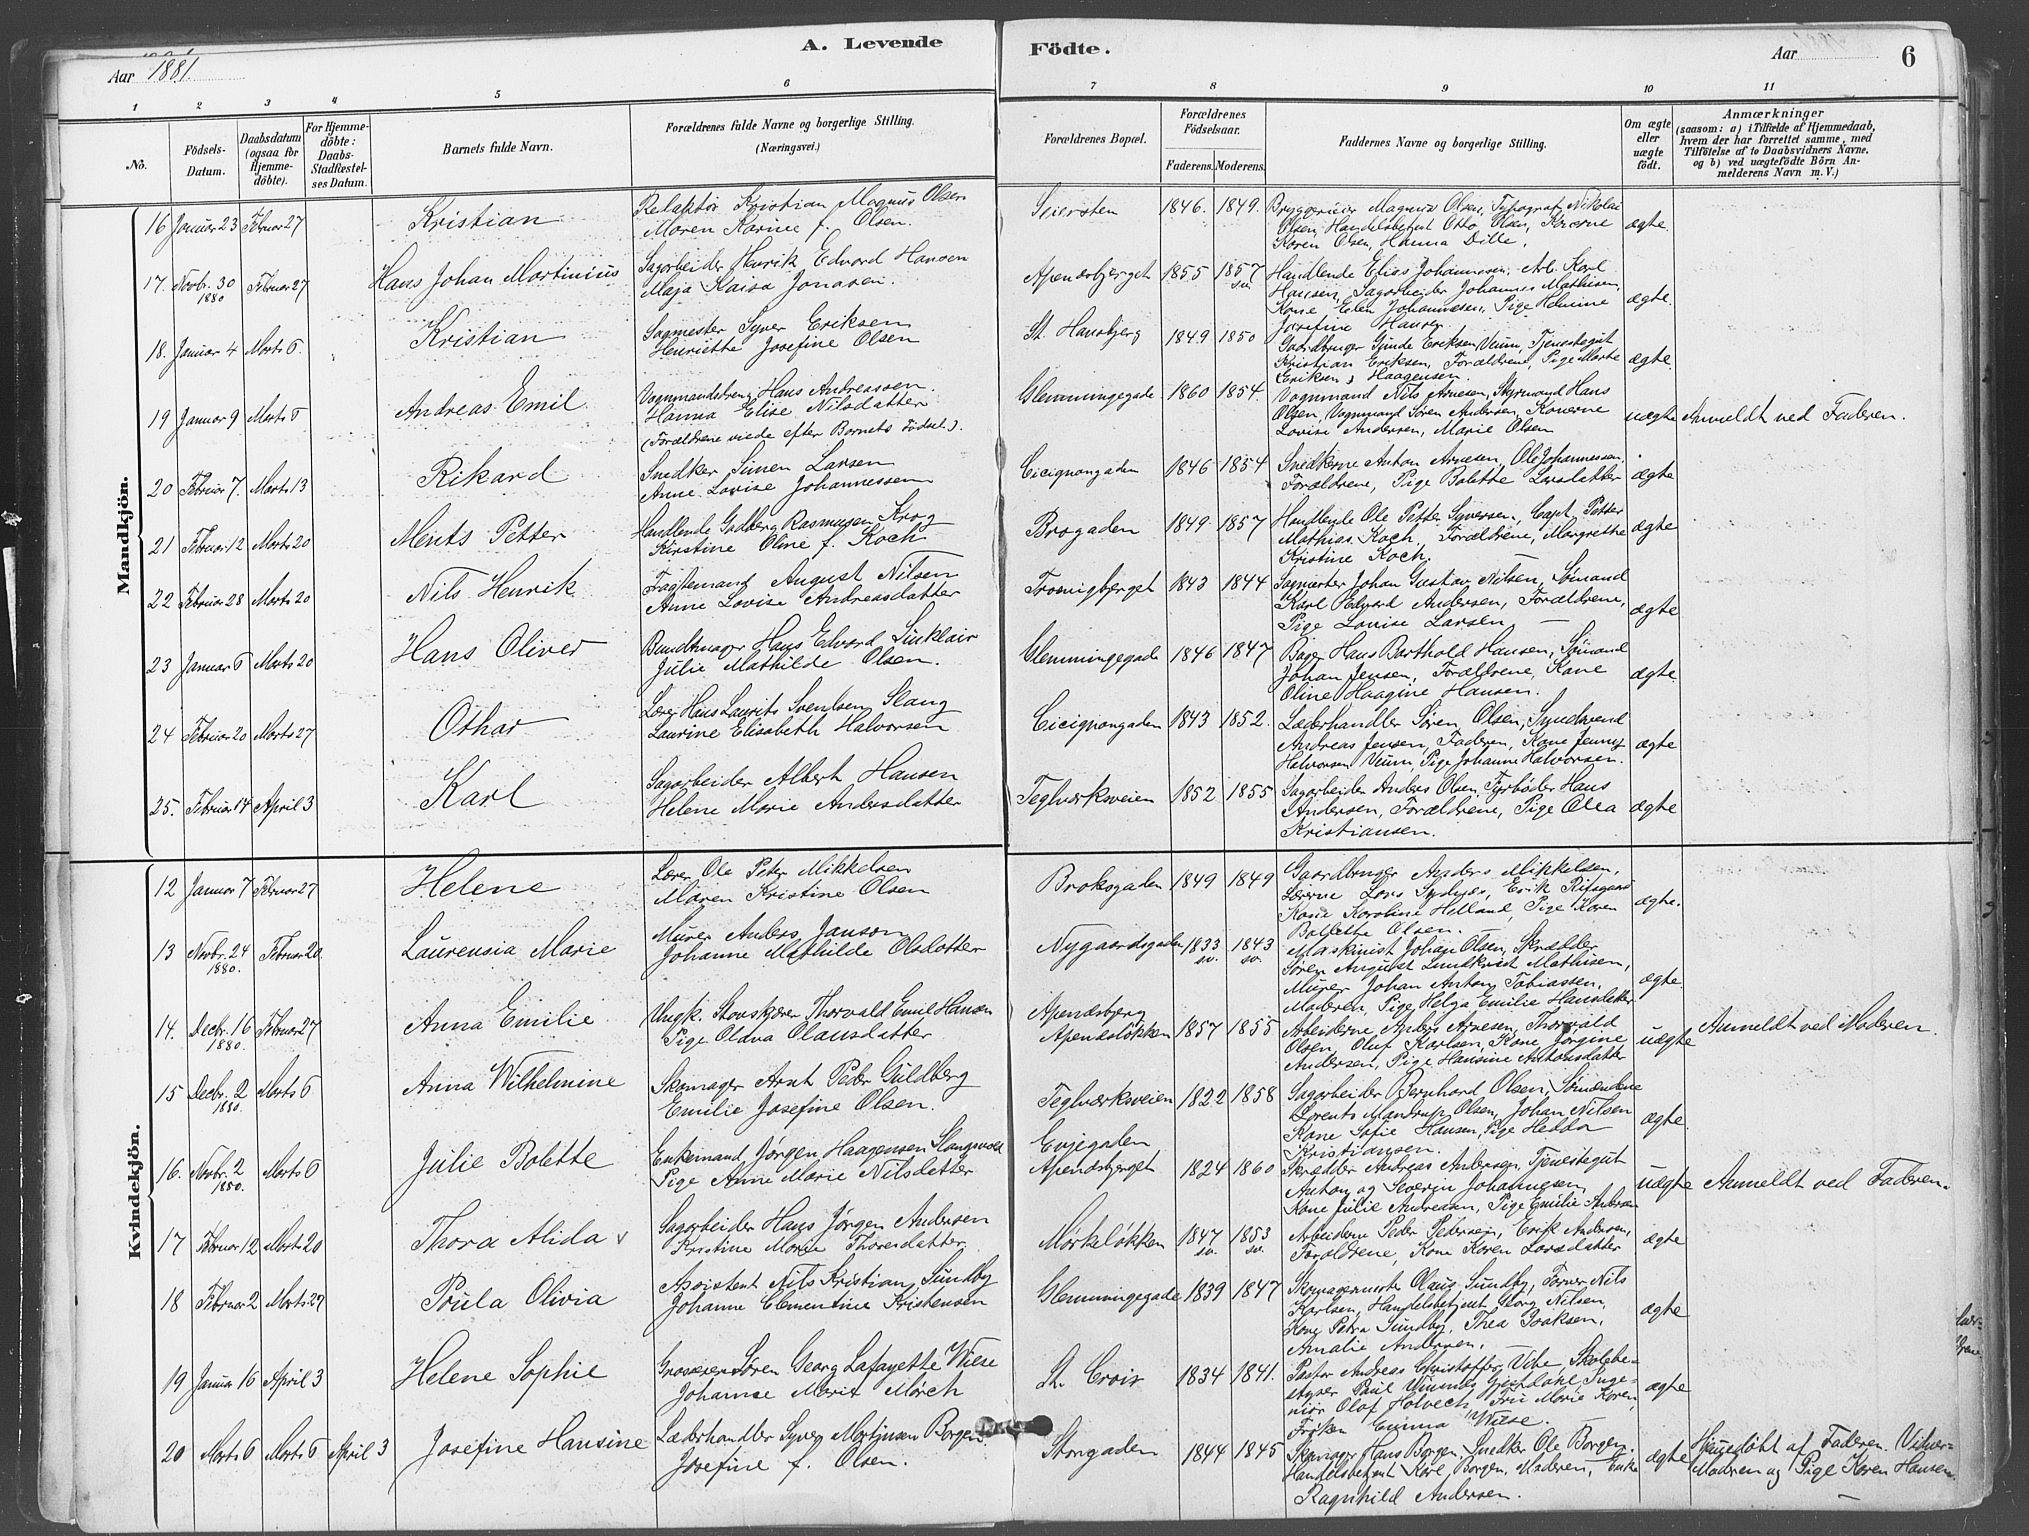 A. Levende
Födte.
Aar 1881.
Aar
6
1 2 3 4 5 6 7 8 9 10 11
No.
Födsels-
Datum.
Daabsdatum
(ogsaa for
Hjemme-
döbte).
For Hjemme-
döbte:
Daabs-
Stadfæstel-
ses Datum.
Barnets fulde Navn.
Forældrenes fulde Navne og borgerlige Stilling.
(Næringsvei.)
Forældrenes Bopæl.
Forældrenes
Födselsaar.
Faderens. Moderens.
Faddernes Navne og borgerlige Stilling.
Om ægte
eller
uægte
födt.
Anmærkninger
(saasom: a) i Tilfælde af Hjemmedaab,
hvem der har forrettet samme, med
Tilföielse af to Daabsvidners Navne.
og b) ved uægtefödte Börn An-
melderens Navn m. V.)
Mandkjön.
16 Januar 23 Februar 27 Kristian
Redaktør Kristian Magnus Olsen
Maren Karine f. Olsen.
Seiersten 1846. 1849.
Bryggerieier Magnus Olsen, Typograf Nikolai
Olsen, Handelsbetjent Otto Olsen, Konerne
Karen Olsen, Hanna Dille.
ægte.
17. Novbr. 30 1880 Februar 27 Hans Johan Martinius
Sagarbeider Henrik Edvard Hansen
Maja Kaisa Jonasen.
Apenæsbjerget 1855 1857 sv.
Handlende Elias Johannesen, Arb. Karl
Hansen, Sagarbeider Johannes Mathisen,
Kone Elen Johannesen, Pige Helmine
Josefine Hansen
ægte.
18. Januar 4 Marts 6. Kristian
Sagmester Syver Eriksen
Henriette Josefine Olsen
St. Hansbjerg 1849 1850
Gaardbruger Gunde Eriksen Veum, Tjenestegut
Kristian Eriksen, Forældrene, Pige Marte
Eriksen, Haagensen.
ægte.
19 Januar 9 Marts 6 Andreas Emil
Vognmandsdreng Hans Andreassen.
Hanna Elise Nilsdatter
(Forældrene viede efter Barnets Fødsel).
Glemmingegade 1860 1854.
Vognmand Nils Arnesen, Styrmand Hans
Olsen, Vognmand Søren Andersen, Konerne
Lovise Andersen, Marie Olsen
uægte Anmeldt ved Faderen.
20 Februar 7. Marts 13 Rikard
Snedker Simen Larsen
Anne Lovise Johannessen
Cicignongaden 1846 1854
Snedkerne Anton Arnesen, Ole Johannessen,
Forældrene, Pige Bolette Larsdatter
ægte
21 Februar 12 Marts 20 Ments Petter
Handlende Gudberg Rasmusen Krog
Kirstine Oline f. Koch
Brogaden 1849 1857
Handlende Ole Petter Syversen, Capt. Petter
Mathias Koch, Forældrene, Margrethe
Kristine Koch.
ægte
22 Februar 28 Marts 20 Nils Henrik
Fragtemand August Nilsen
Anne Lovise Andreasdatter
1843 1844
Sagmester Johan Gustav Nilsen, Sømand
Karl Edvard Andersen, Forældrene,
Pige Lovise Larsen
ægte
23 Januar 6 Marts 20 Hans Oliver
Bundtmager Hans Edvard Sinklair
Julie Mathilde Olsen.
Glemmingegade 1846 1847
Bager Hans Barthold Hansen, Sømand
Johan Jensen, Forældrene, Kone
Oline Haagine Hansen.
ægte.
24 Februar 20 Marts 27 Othar
Lærer Hans Laurits Svendsen Stang
Laurine Elisabeth Halvorsen
Cicignongaden 1843 1852.
Læderhandler Søren Olsen,
Andreas Jensen, Faderen, Kone Jenny
Halvorsen Veum, Pige Johanne Halvorsen.
ægte
25. Februar 14 April 3 Karl
Sagarbeider Albert Hansen
Helene Marie Andersdatter
Teglværksveien 1852 1855
Sagarbeider Anders Olsen, Fyrbøder Hans
Andersen, Forældrene, Pige Olea
Kristiansen.
ægte
Kvindekjön.
12 Januar 7 Februar 27 Helene
Lærer Ole Peter Mikkelsen
Maren Kristine Olsen
Broksgaden 1849 1849
Gaardbruger Anders Mikkelsen,
Lærerne Lars Sydnæs, Erik
Kone Karoline Helland, Pige Karen
Bolette Olsen.
ægte.
13 Novbr. 24 1880. Februar 20 Laurensia Marie
Murer Anders Janson
Johanne Mathilde Olsdatter
Nygaardsgaden 1833 sv. 1843 sv.
Maskinist Johan Olsen, Skrædder
Søren August Lundkvist Mathisen,
Murer Johan Anton Tobiassen,
Moderen, Pige Helga Emilie Hansdatter
ægte.
14. Decbr. 16 1880. Februar 27 Anna Emilie
Ungk. Stenskjærer Thorvald Emil Hansen
Pige Olava Olausdatter
Apenæsberg
Apenæsløkken 1857 1855
Arbeiderne Anders Arnesen, Thorvald
Olsen, Oluf Karlsen, Kone Jørgine
Andersen, Pige Hansine Antonsdatter
uægte Anmeldt ved Moderen.
15 Decbr. 2 1880. Marts 6 Anna Wilhelmine
Skomager Arnt Peder Guldberg
Emilie Josefine Olsen.
Teglværksveien 1822 1858
Sagarbeider Bernhard Olsen, Sømændene
Lorents Mandrup Olsen, Johan Nilsen
Kone Sofie Hansen, Pige Hedda
Kristiansen.
ægte.
16. Novbr. 2 1880. Marts 6 Julie Bolette
Enkemand Jørgen Haagensen Slangsvold
Pige Anne Marie Nilsdatter
Evjegaden
Apenæsbjerget 1824 1860
Skrædder Andreas Andersen, Tjenestegut
Anton og Severin Johannesen,
Kone Julie Andresen, Pige Emilie Andersen
uægte Anmeldt ved Faderen.
17 Februar 12 Marts 20 Thora Alida
Sagarbeider Hans Jørgen Andersen
Kristine Marie Thoresdatter
Mørkeløkken 1847 sv. 1853 sv.
Arbeiderne Peder Pedersen, Erik Andersen,
Forældrene, Kone Karen Larsdatter
ægte
18 Februar 2 Marts 27 Poula Olivia
Assistent Nils Kristian Sundby
Johanne Clementine Kristensen
Glemmingegade 1839 1847
Skomagermester Olaus Sundby, Farver Nils
Karlsen, Handelsbetjent Georg Nilsen,
Kone Petra Sundby, Thea Isaksen,
Amalie Andersen.
ægte
19 Januar 16 April 3 Helene Sophie
Grosserer Søren Georg Lafayette Wiese
Johanne Marie Mørch
St. Croix 1834 1841.
Pastor Andreas Christoffer Vibe, Skolebe-
styrer Paul Vinsnes Gjerdahl, Inge-
niør Olaf Holvech, Fru Marie Koren,
Frøken Emma Wiese.
ægte
20 Marts 6 Marts 6 April 3 Josefine Hansine
Læderhandler Syver Martinsen Borgen
Josefine f. Olsen.
Storgaden 1844 1845
Skomager Hans Borgen, Snedker Ole Borgen,
Handelsbetjent Karl Borgen, Moderen, Enke
Ragnhild Andersen.
ægte
Hjemmedøbt af Faderen. Vidner:
Modren og Pige Karen Hansen.